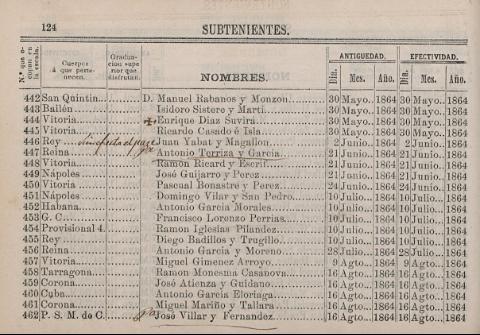 124 SUBTENIENTES.
N.º que ocupan en la escala. Cuerpos á que pertenecen. Graduacion superior que disfrutan. NOMBRES. ANTIGUEDAD. Dia. Mes. Año. EFECTIVIDAD. Dia. Mes. Año.
442 San Quintin. D. Manuel Rabanos y Monzon 30 Mayo.. 1864 30 Mayo.. 1864
443 Bailén Isidoro Sistere y Martí 30 Mayo.. 1864 30 Mayo.. 1864
444 Vitoria Enrique Diaz Suvira 30 Mayo.. 1864 30 Mayo.. 1864
445 Vitoria Ricardo Casado é Isla 30 Mayo.. 1864 30 Mayo.. 1864
446 Rey Juan Yabat y Magallon 2 Junio.. 1864 2 Junio.. 1864
447 Reina Antonio Terriza y Garcia 21 Junio.. 1864 21 Junio.. 1864
448 Vitoria Ramon Ricard y Escrif 21 Junio.. 1864 21 Junio.. 1864
449 Nápoles José Guijarro y Perez 21 Junio.. 1864 21 Junio.. 1864
450 Vitoria Pascual Bonastre y Perez 24 Junio.. 1864 24 Junio.. 1864
451 Nápoles Domingo Vilar y San Pedro 10 Julio.. 1864 10 Julio.. 1864
452 Habana Antonio Garcia Morales 10 Julio.. 1864 10 Julio.. 1864
453 G. C. Francisco Lorenzo Perrias 10 Julio.. 1864 10 Julio.. 1864
454 Provisional 4. Ramon Iglesias Pilandez 10 Julio.. 1864 10 Julio.. 1864
455 Rey Diego Badillos y Trugillo 10 Julio.. 1864 10 Julio.. 1864
456 Reina Antonio Garcia y Moreno 28 Julio.. 1864 28 Julio.. 1864
457 Vitoria Miguel Gimenez Arroyo 9 Agto. 1864 9 Agto. 1864
458 Tarragona Ramon Monesma Casanova 16 Agto. 1864 16 Agto. 1864
459 Corona José Atienza y Guidano 16 Agto. 1864 16 Agto. 1864
460 Cuba Antonio Garcia Eloriaga 16 Agto. 1864 16 Agto. 1864
461 Corona Miguel Mariño y Tallara 16 Agto. 1864 16 Agto. 1864
462 P. S. M. de C. José Villar y Fernandez 16 Agto. 1864 16 Agto. 1864